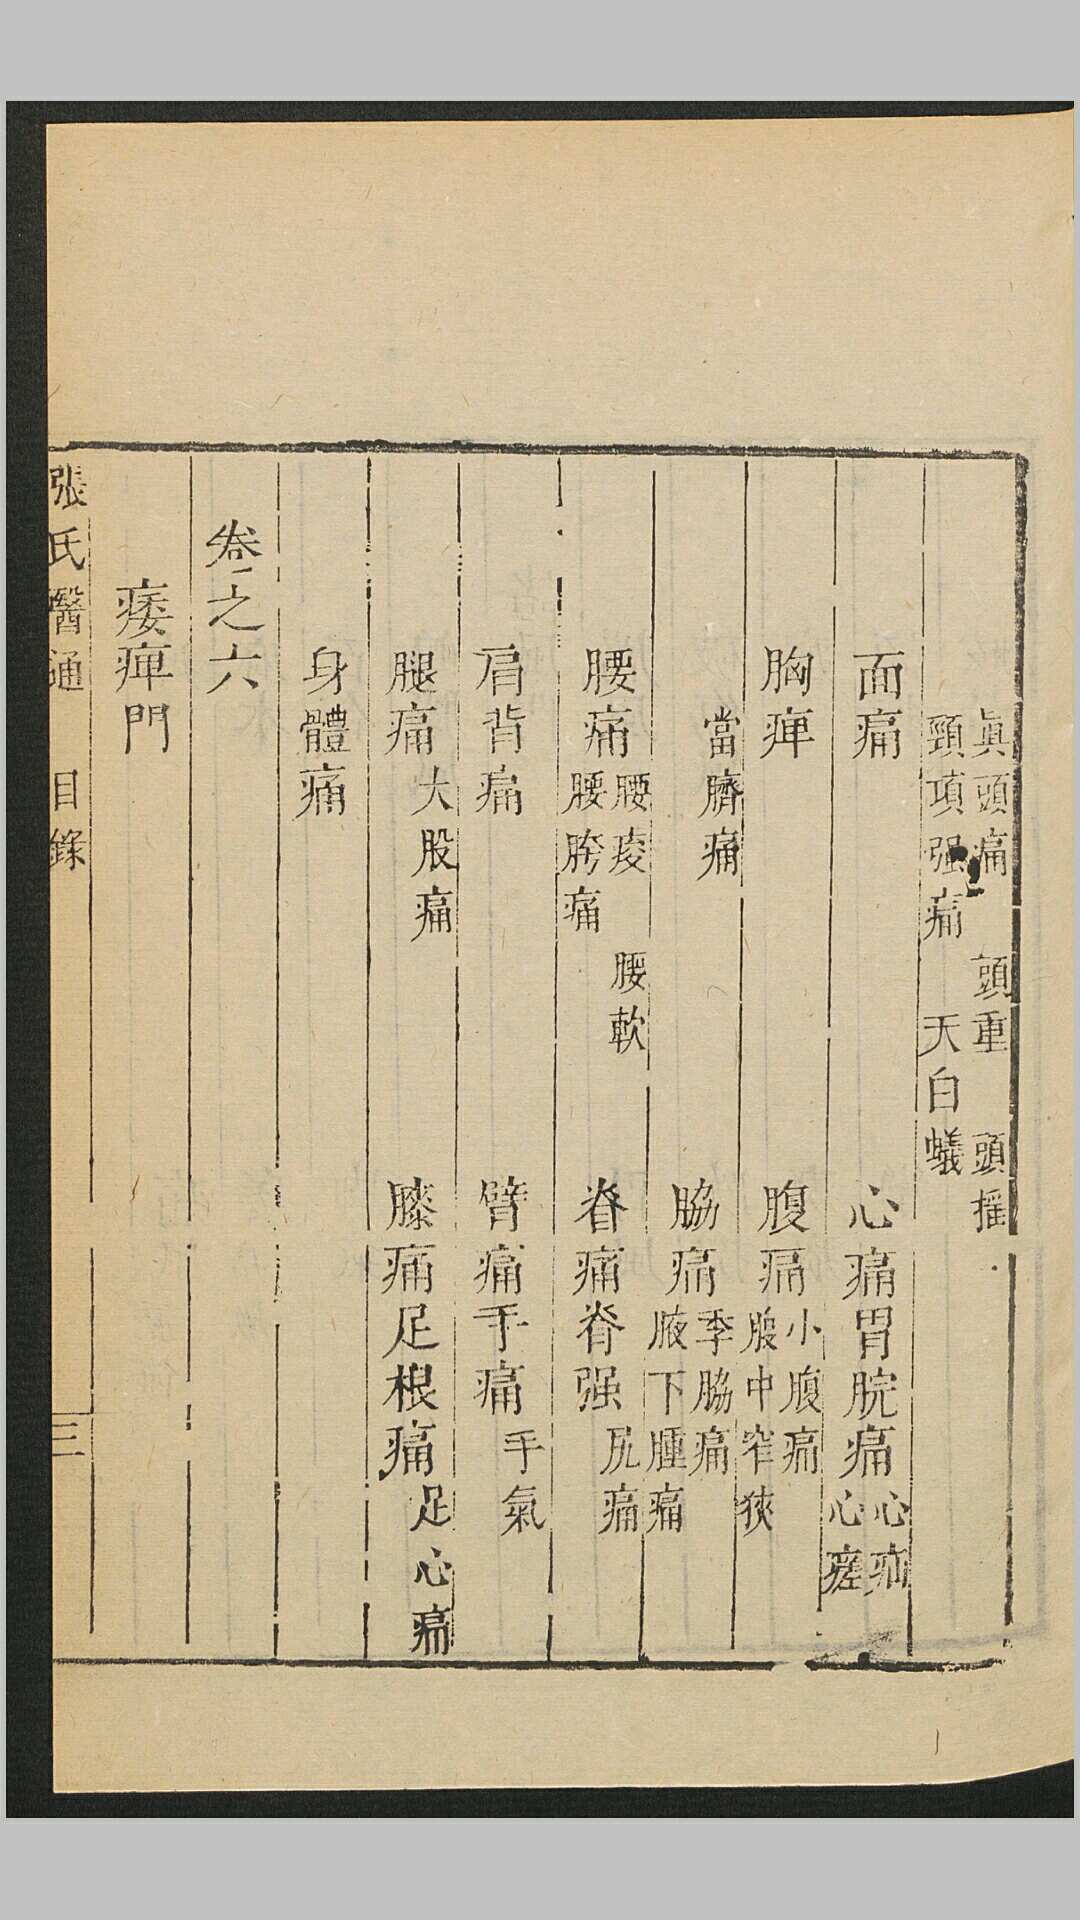 眞頭痛 頭重 頭摇
頸項强痛 天白蟻
面痛 心痛胃脘痛 心疝 心瘥
胸痺 腹痛 小腹痛 腹中窄狹
當臍痛 脇痛 季脇痛 腋下腫痛
腰痛 腰痠 腰軟 腰胯痛 脊痛脊强 尻痛
肩背痛 臂痛手痛 手氣
腿痛 大股痛 膝痛足根痛 足心痛
身體痛
卷之六
痿痺門
張氏醫通 目錄 三